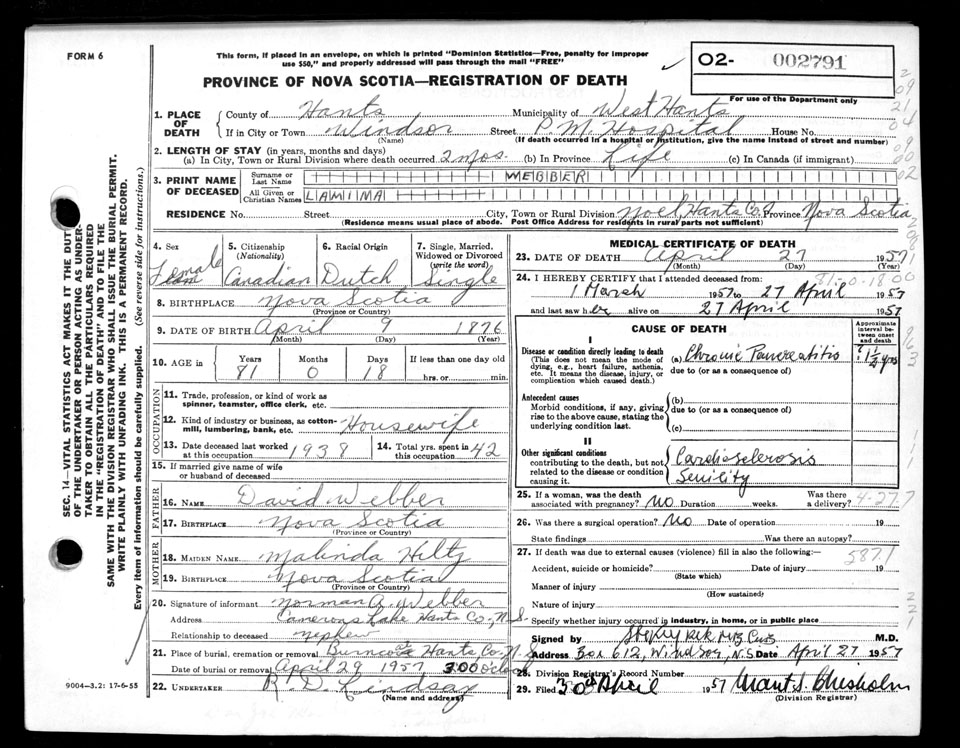 FORM 6
This form, if placed in an envelope, on which is printed "Dominion Statistics—Free, penalty for improper
use $50," and properly addressed will pass through the mail "FREE"
PROVINCE OF NOVA SCOTIA—REGISTRATION OF DEATH
02- 002791
For use of the Department only
1. PLACE OF DEATH
County of Hants Municipality of West Hants
If in City or Town Windsor Street P.M. Hospital House No.
(Name) (If death occurred in a hospital or institution, give the name instead of street and number)
2. LENGTH OF STAY (in years, months and days)
(a) In City, Town or Rural Division where death occurred 2 mos. (b) In Province Life (c) In Canada (if immigrant)
3. PRINT NAME OF DECEASED
Surname or Last Name WEBBER
All Given or Christian Names LAMINA
RESIDENCE No. Street City, Town or Rural Division Noel, Hants Co. Province Nova Scotia
(Residence means usual place of abode. Post Office Address for residents in rural parts not sufficient)
4. Sex Female
5. Citizenship (Nationality) Canadian
6. Racial Origin Dutch
7. Single, Married, Widowed or Divorced (write the word) Single
8. BIRTHPLACE Nova Scotia
(Province or Country)
9. DATE OF BIRTH April 9 1876
(Month) (Day) (Year)
10. AGE in Years 81 Months 0 Days 18 If less than one day old hrs. or min.
OCCUPATION
11. Trade, profession, or kind of work as spinner, teamster, office clerk, etc.
12. Kind of industry or business, as cotton-mill, lumbering, bank, etc. Housewife
13. Date deceased last worked at this occupation 1938
14. Total yrs. spent in this occupation 42
15. If married give name of wife or husband of deceased
FATHER
16. NAME David Webber
17. BIRTHPLACE Nova Scotia
(Province or Country)
MOTHER
18. MAIDEN NAME Malinda Hiltz
19. BIRTHPLACE Nova Scotia
(Province or Country)
20. Signature of informant Norman A. Webber
Address Camerons Lake Hants Co., N.S.
Relationship to deceased nephew
21. Place of burial, cremation or removal Hants Co. N.S.
Date of burial or removal April 29 1957 3.00 o'clock
22. UNDERTAKER R. D. Lindsay
(Name and address)
9004—3.2: 17-6-55
MEDICAL CERTIFICATE OF DEATH
23. DATE OF DEATH April 27 1957
(Month) (Day) (Year)
24. I HEREBY CERTIFY that I attended deceased from:
1 March 1957 to 27 April 1957
and last saw her alive on 27 April 1957
CAUSE OF DEATH
Approximate interval between onset and death
I
Disease or condition directly leading to death
(This does not mean the mode of dying, e.g., heart failure, asthenia, etc. It means the disease, injury, or complication which caused death.)
(a) Chronic Pancreatitis ? 1½ yrs
due to (or as a consequence of)
Antecedent causes
Morbid conditions, if any, giving rise to the above cause, stating the underlying condition last.
(b)
due to (or as a consequence of)
(c)
II
Other significant conditions
contributing to the death, but not related to the disease or condition causing it.
Cardiosclerosis
Senility
25. If a woman, was the death associated with pregnancy? No Duration weeks. Was there a delivery? 4-27.7
26. Was there a surgical operation? No Date of operation 19
State findings Was there an autopsy?
27. If death was due to external causes (violence) fill in also the following:—
587.1
Accident, suicide or homicide? Date of injury 19
(State which)
Manner of injury
(How sustained)
Nature of injury
Specify whether injury occurred in industry, in home, or in public place
Signed by M.D.
Address Box 612, Windsor, N.S. Date April 27 1957
28. Division Registrar's Record Number
29. Filed 30th April 1957 Grant S. Chisholm
(Division Registrar)
SEC. 14—VITAL STATISTICS ACT MAKES IT THE DUTY
OF THE UNDERTAKER OR PERSON ACTING AS UNDER-
TAKER TO OBTAIN ALL THE PARTICULARS REQUIRED
IN THE "REGISTRATION OF DEATH" AND TO FILE THE
SAME WITH THE DIVISION REGISTRAR WHO SHALL ISSUE THE BURIAL PERMIT.
WRITE PLAINLY WITH UNFADING INK. THIS IS A PERMANENT RECORD.
Every item of information should be carefully supplied. (See reverse side for instructions.)